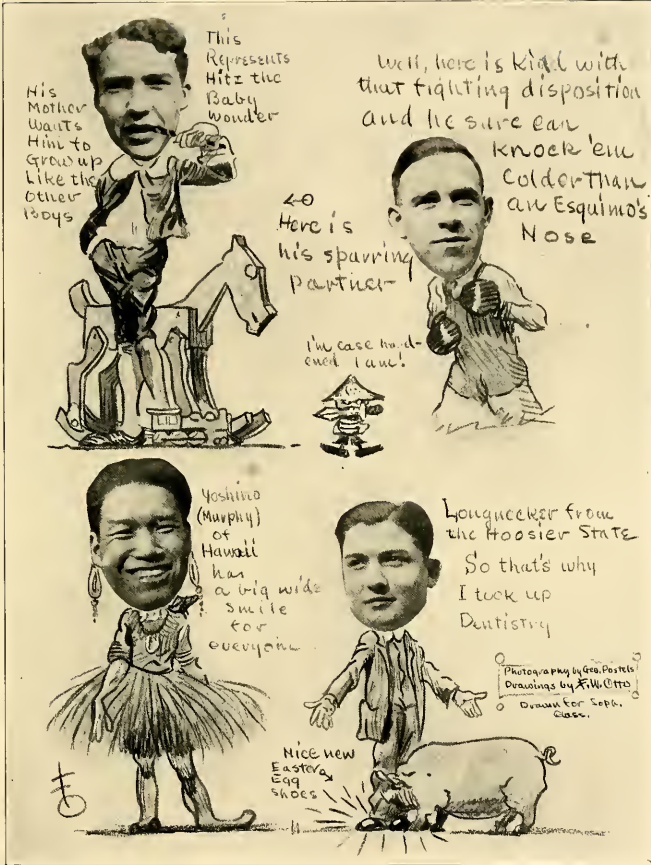 This
Represents
Hitz the
Baby
wonder
His
Mother
Wants
Him to
Grow up
Like the
Other
Boys
Well, here is Kidd with
that fighting disposition
and he sure can
knock 'em
Colder Than
an Esquimo's
Nose
Here is
his sparring
partner
I'm case hard-
ened I am!
Yoshino
(Murphy)
of
Hawaii
has
a big wide
smile
for
everyone
Longnecker from
the Hoosier State
So that's why
I took up
Dentistry
Photography by Geo. Postels
Drawings by F.W. Otto
Drawn for Soph.
Class.
Nice new
Easter
Egg
Shoes